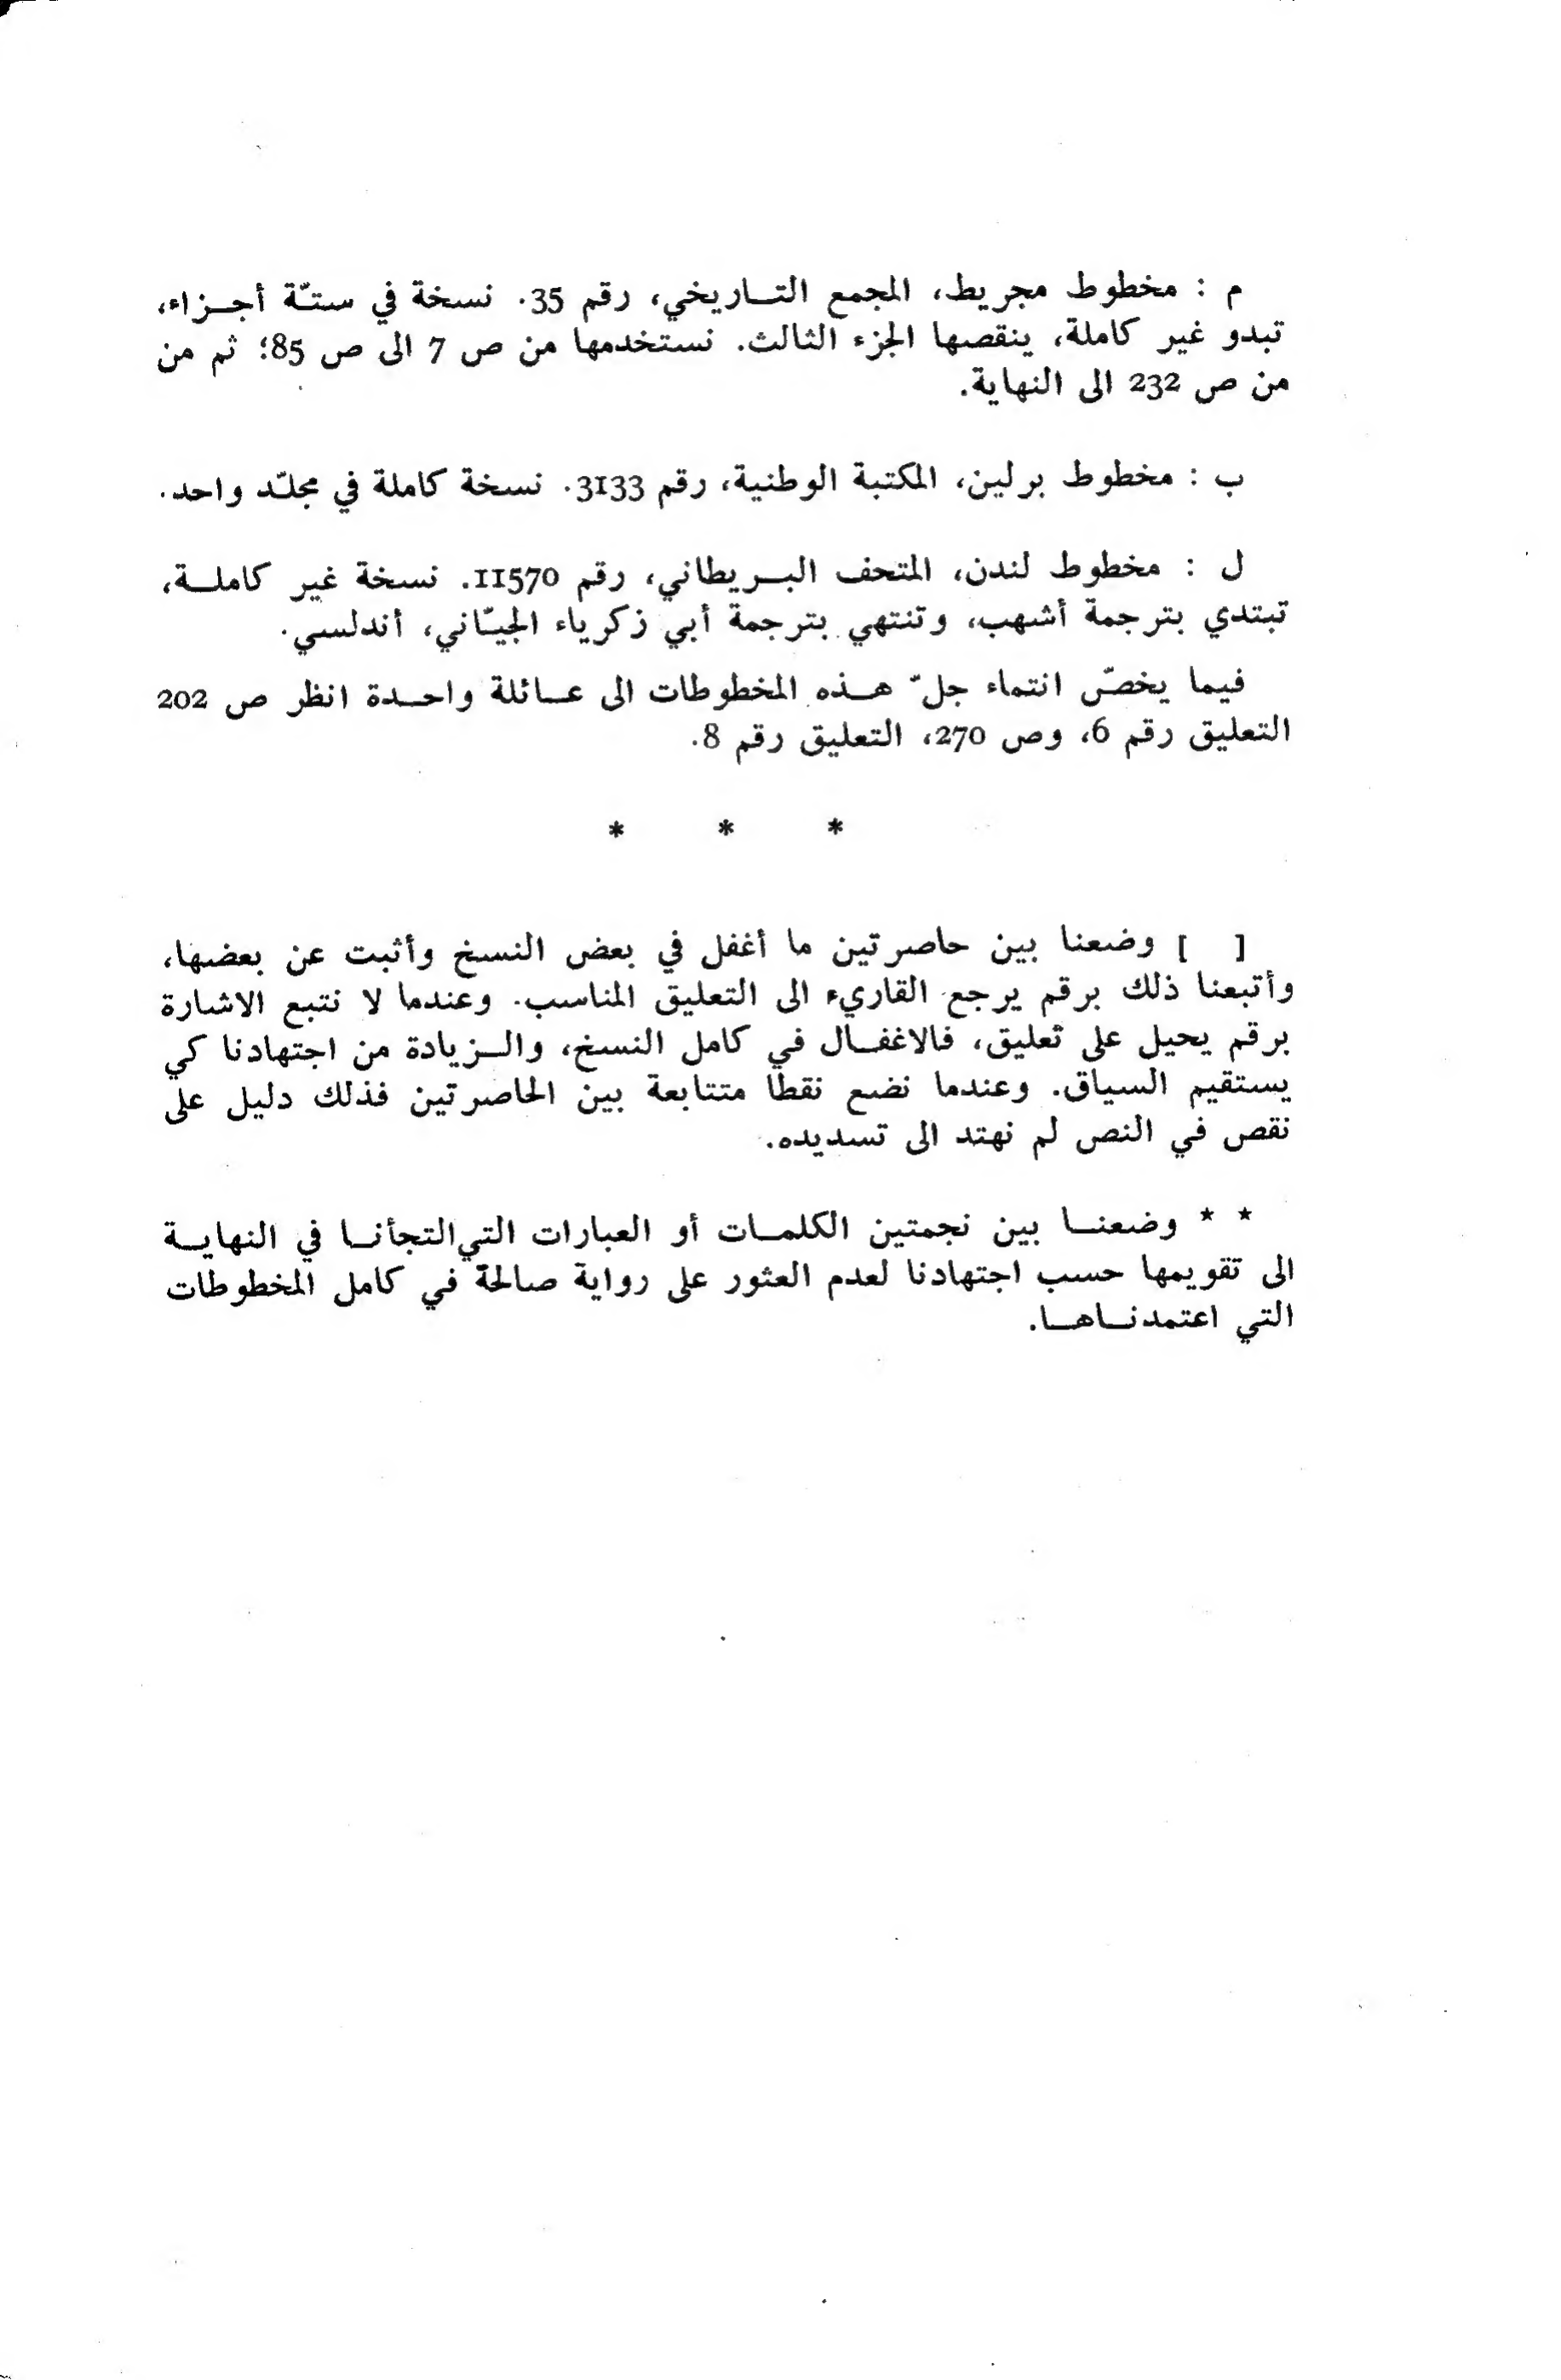 م : مخطوط مجريط، المجمع التاريخي، رقم 35. نسخة في ستّة أجزاء،
تبدو غير كاملة، ينقصها الجزء الثالث. نستخدمها من ص 7 الى ص 85؛ ثم من
من ص 232 الى النهاية.
ب : مخطوط برلين، المكتبة الوطنية، رقم 3133. نسخة كاملة في مجلّد واحد.
ل : مخطوط لندن، المتحف البريطاني، رقم 11570. نسخة غير كاملة،
تبتدي بترجمة أشهب، وتنتهي بترجمة أبي زكرياء الجيّاني، أندلسي.
فيما يخصّ انتماء جلّ هذه المخطوطات الى عائلة واحدة انظر ص 202
التعليق رقم 6، وص 270، التعليق رقم 8.
* * *
[ ] وضعنا بين حاصرتين ما أغفل في بعض النسخ وأثبت عن بعضها،
وأتبعنا ذلك برقم يرجع القاريء الى التعليق المناسب. وعندما لا نتبع الاشارة
برقم يحيل على تعليق، فالاغفال في كامل النسخ، والزيادة من اجتهادنا كي
يستقيم السياق. وعندما نضع نقطا متتابعة بين الحاصرتين فذلك دليل على
نقص في النص لم نهتد الى تسديده.
* * وضعنا بين نجمتين الكلمات أو العبارات التي التجأنا في النهاية
الى تقويمها حسب اجتهادنا لعدم العثور على رواية صالحة في كامل المخطوطات
التي اعتمدناها.